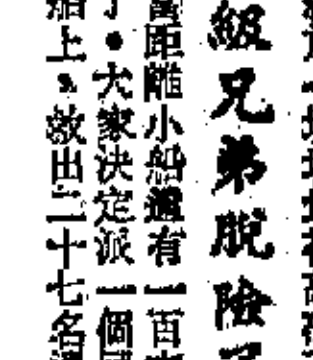 級兄弟脫險
距離小船還有一百
大家決定派一個
船上，救出二十七名